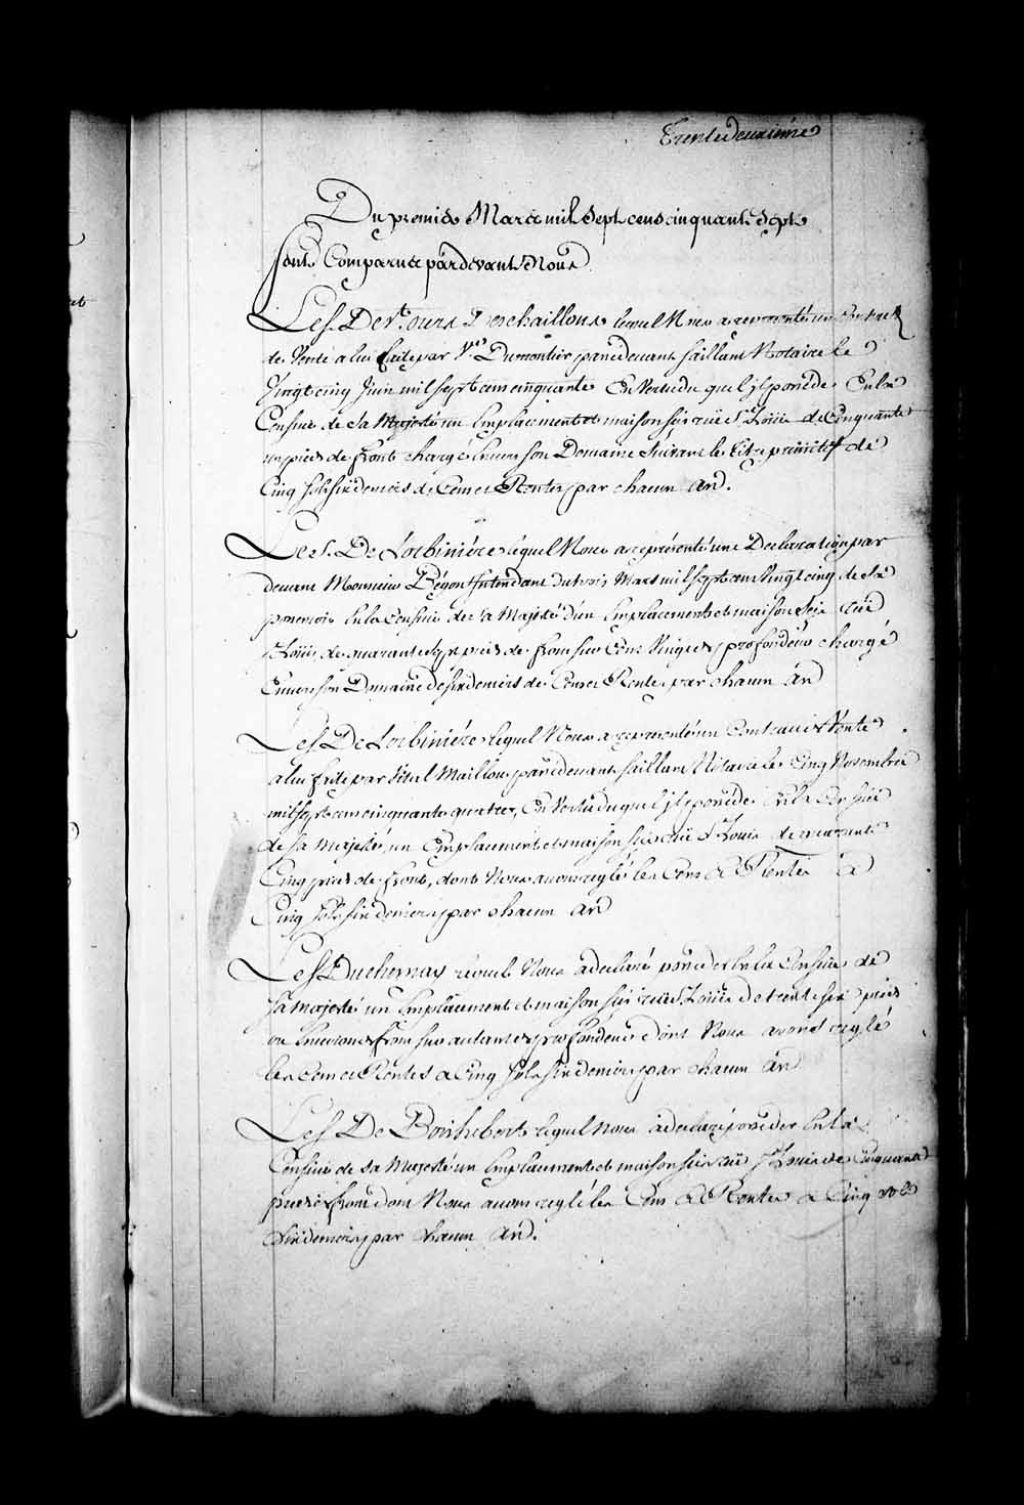 Trente deuxiéme
Du premier Mars mil Sept cens cinquante Sept
Sont Comparus pardevant Nous
Le S. De St. ours Deschaillons lequel Nous a representé un Contract
de Vente a lui faite par Dumontier pardevant Saillant Notaire le
Vingt cinq Juin mil sept cens cinquante En Vertu du quel jl possede En la
Censive de Sa Majesté un Emplacement et maison sis rüe St. Loüis de Cinquante
un pieds de front chargé Envers son Domaine Suivant le titre primitif de
Cinq sols six deniers de Cens et Rentes par chacun an.
Le S. De Lorbiniére lequel Nous a representé une Declaration par
devant Monsieur Bégon Intendant du trois Mars mil sept cens Vingt cinq de la
possession En la Censive de Sa Majesté d'un Emplacement et maison Scis rüe
St Loüis de quarante sept pieds de front sur Cent Vingt de profondeur chargé
Envers son Domaine de six deniers de Cens et Rentes par chacun an
Le S. De Lorbiniére lequel Nous a representé un Contract de Vente
a lui faite par Vital Maillou pardevant Saillant Notaire le Cinq Novembre
mil sept cens cinquante quatre, En Vertu du quel jl possede En la Censive
de Sa Majesté, un Emplacement et maison scis rüe St Louis de quarante
Cinq pieds de front, dont Nous avons reglé les Cens & Rentes a
Cinq sols six deniers par chacun an
Le S. Duchesnay lequel Nous a declaré posseder En la Censive de
Sa Majesté un Emplacement et maison sis rüe St. Loüis de trente six pieds
ou Environ de front sur autant de profondeur dont Nous avons reglé
les Cens et Rentes a Cinq sols six deniers par chacun an
Le S. De Boishebert lequel Nous a declaré posseder En la
Censive de Sa Majesté un Emplacement et maison scis rüe St Louis de Cinquante
pieds de front dont Nous avons reglé les Cens & Rentes a Cinq sols
Six deniers par chacun an.